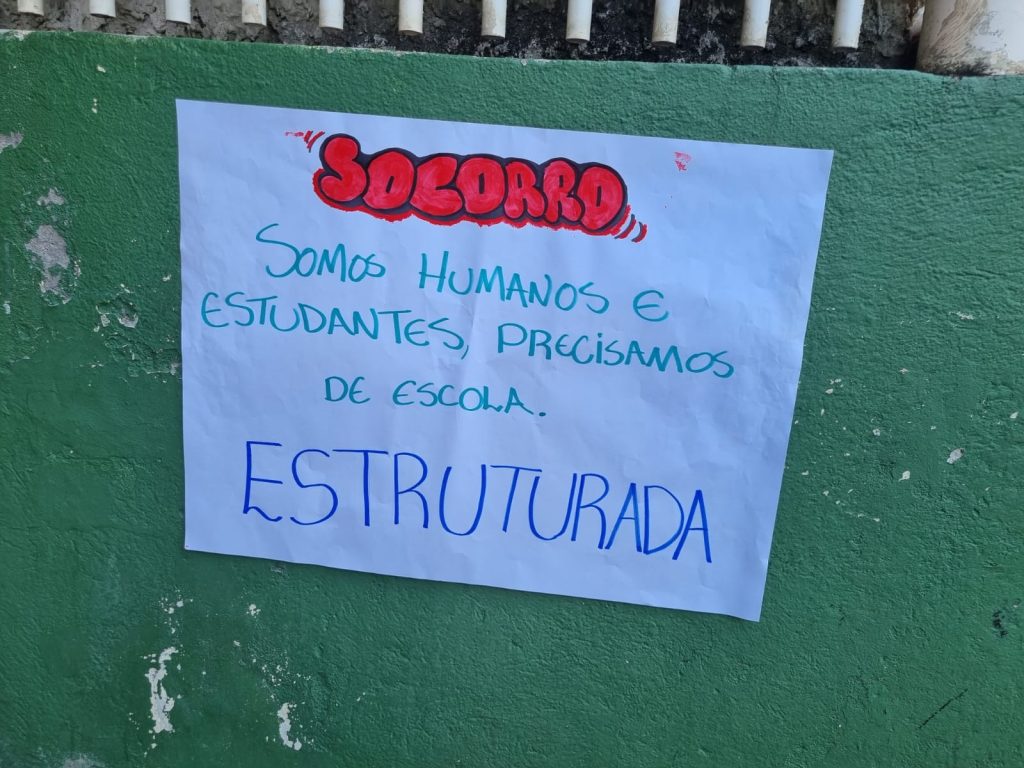 SOCORRO
SOMOS HUMANOS E
ESTUDANTES, PRECISAMOS
DE ESCOLA.
ESTRUTURADA